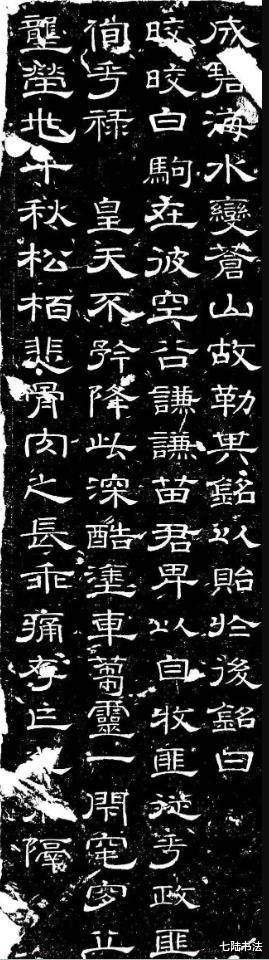 成碧海水變蒼山故勒其銘以貽於後銘曰
皎皎白駒在彼空谷謙謙苗君卑以自牧匪徒乎政匪
徇乎祿 皇天不矜降此深酷塗車蒭靈一閇窀穸丘
壟塋兆千秋松栢悲骨肉之長乖痛存亡隔
七陆书法